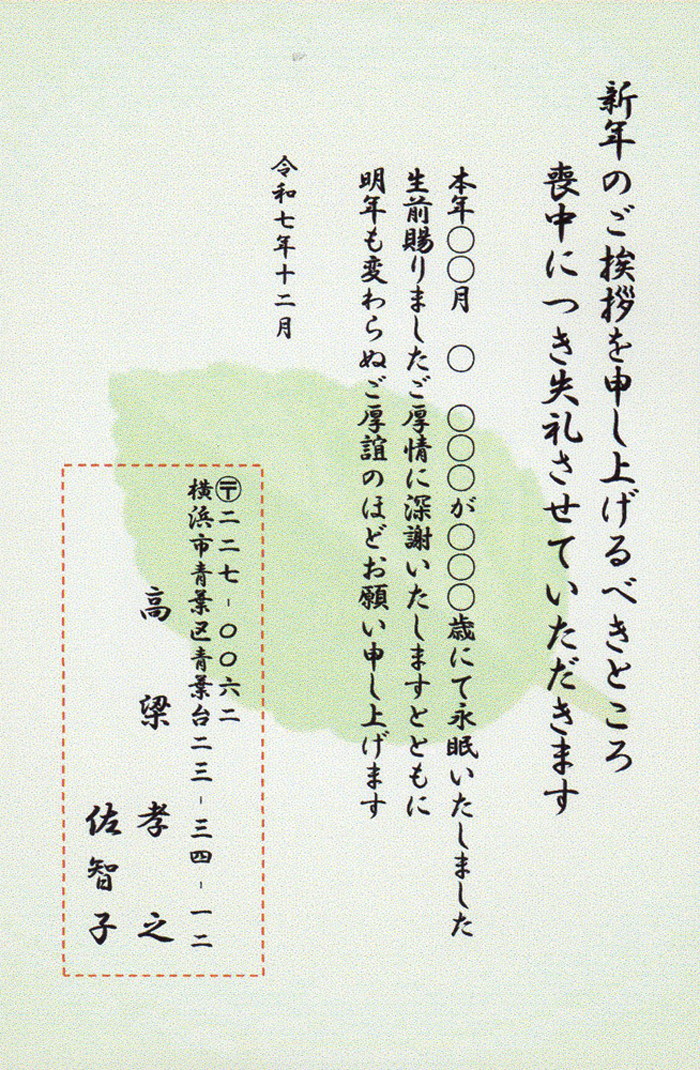 新年のご挨拶を申し上げるべきところ
喪中につき失礼させていただきます
本年〇〇月　〇　〇〇〇が〇〇〇歳にて永眠いたしました
生前賜りましたご厚情に深謝いたしますとともに
明年も変わらぬご厚誼のほどお願い申し上げます
令和七年十二月
〒二二七-〇〇六二
横浜市青葉区青葉台二三-三四-一二
高梁　孝之
佐智子